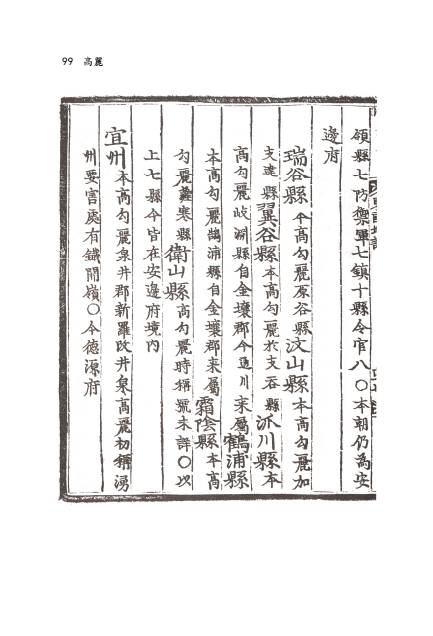 99 高麗
領縣七防禦軍七鎮十縣令官八〇本朝仍為安
邊府
瑞谷縣 本高句麗原谷縣 汶山縣 本高句麗加
支達縣 翼谷縣 本高句麗於支吞縣 派川縣 本
高句麗岐淵縣自金壤郡今通川來屬 鶴浦縣
本高句麗鵠浦縣自金壤郡來屬 霜陰縣 本高
句麗薩寒縣 衛山縣 高句麗時稱號未詳〇以
上七縣今皆在安邊府境內
宜州 本高句麗泉井郡新羅改井泉高麗初稱湧
州要害處有鐵關嶺〇今德源府